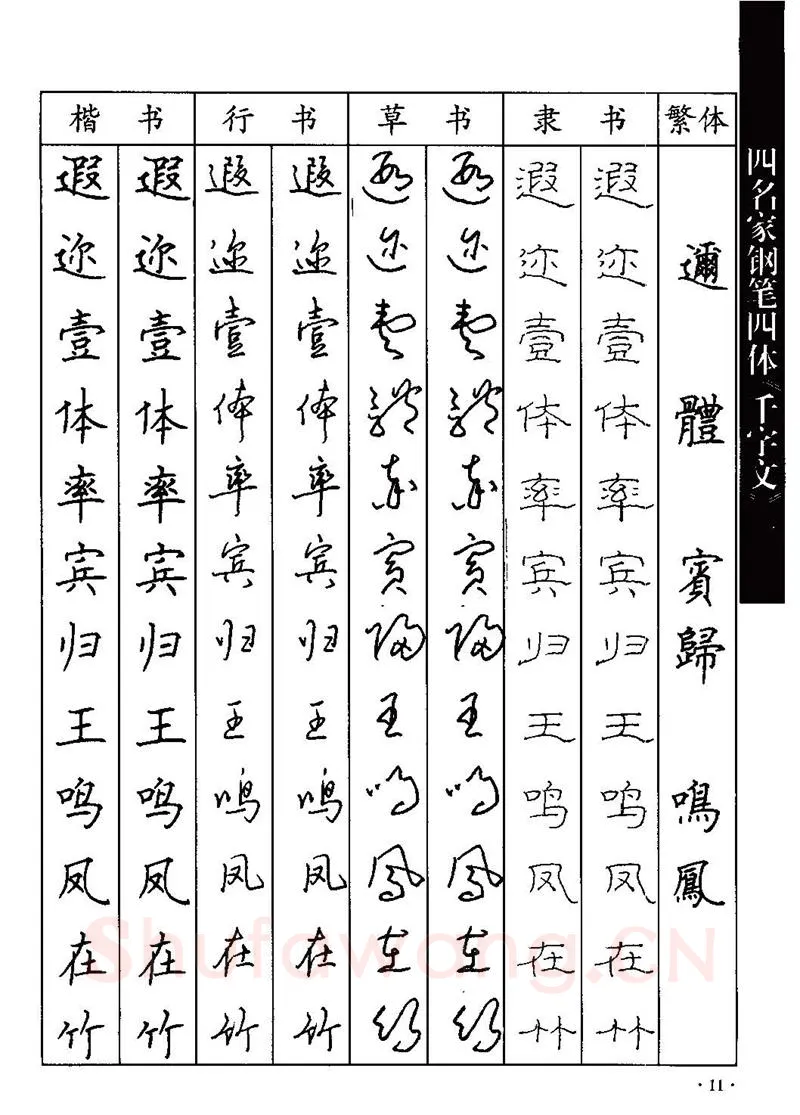 四名家钢笔四体《千字文》
楷书 行书 草书 隶书 繁体
遐 遐 遐 遐 遐 遐 遐 遐
迩 迩 迩 迩 迩 迩 迩 迩 邇
壹 壹 壹 壹 壹 壹 壹 壹
体 体 体 体 體 體 体 体 體
率 率 率 率 率 率 率 率
宾 宾 宾 宾 賓 賓 宾 宾 賓
归 归 归 归 歸 歸 归 归 歸
王 王 王 王 王 王 王 王
鸣 鸣 鸣 鸣 鸣 鸣 鸣 鸣 鳴
凤 凤 凤 凤 鳳 鳳 凤 凤 鳳
在 在 在 在 在 在 在 在
竹 竹 竹 竹 竹 竹 竹 竹
Shufawang.CN
·11·